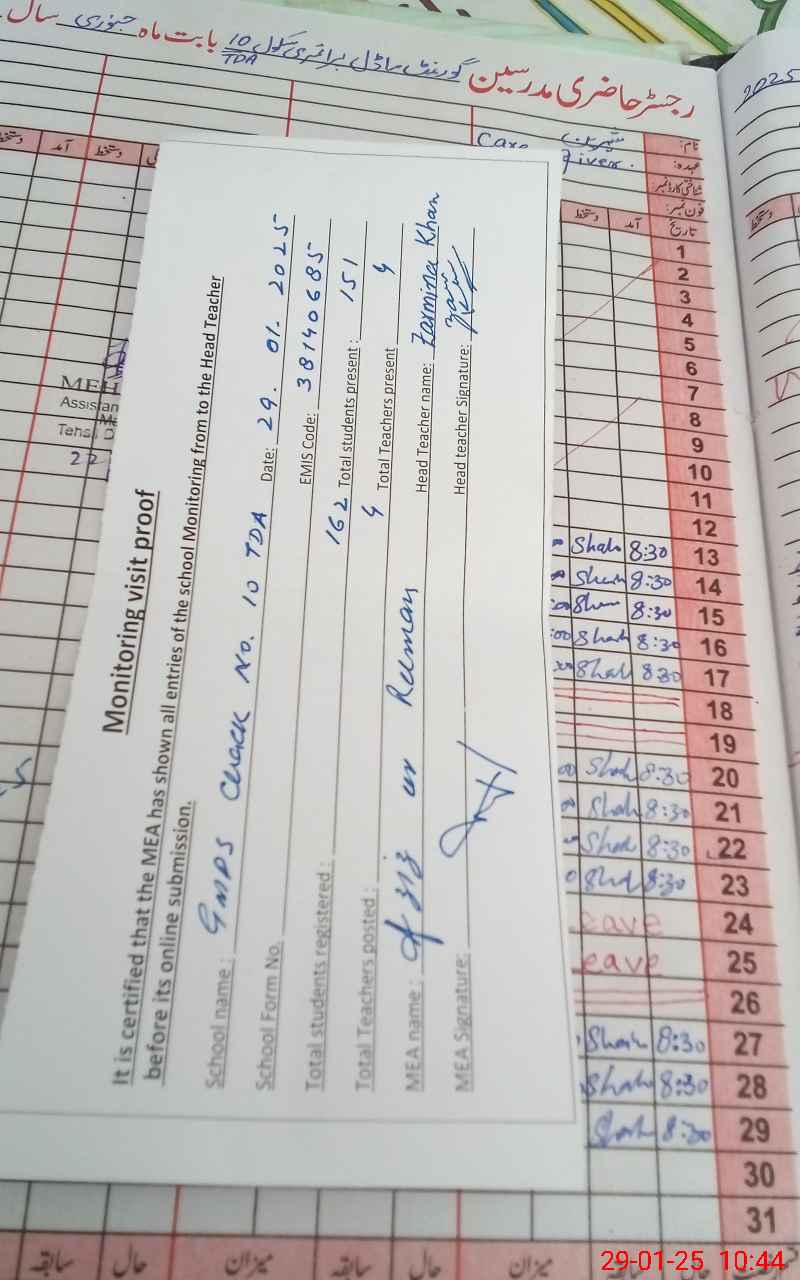 رجسٹر حاضری مدرسین گورنمنٹ ماڈل پرائمری سکول 10/TDA بابت ماہ جنوری سال
2025
نام:
عہدہ: Care Giver.
شناختی کارڈ نمبر:
فون نمبر:
تاریخ آمد دستخط
آمد دستخط
دستخط
Monitoring visit proof
It is certified that the MEA has shown all entries of the school Monitoring from to the Head Teacher
before its online submission.
School name: GMPS Chack No. 10 TDA Date: 29.01.2025
School Form No. EMIS Code: 38140685
Total students registered: 162 Total students present: 151
Total Teachers posted: 4 Total Teachers present 4
MEA name: Aziz ur Reman Head Teacher name: Zarmina Khan
MEA Signature: Head teacher Signature:
MEH
Assistan
Tehsil D
22
1
2
3
4
5
6
7
8
9
10
11
12
13 8:30 Shah
14 8:30 Shah
15 8:30 Shah
16 8:30 Shah
17 8:30 Shah
18
19
20 8:30 Shah
21 8:30 Shah
22 8:30 Shah
23 8:30 Shah
24 eave
25 eave
26
27 8:30 Shah
28 8:30 Shah
29 8:30 Shah
30
31
سابقہ حال میزان سابقہ حال میزان سابقہ
29-01-25 10:44